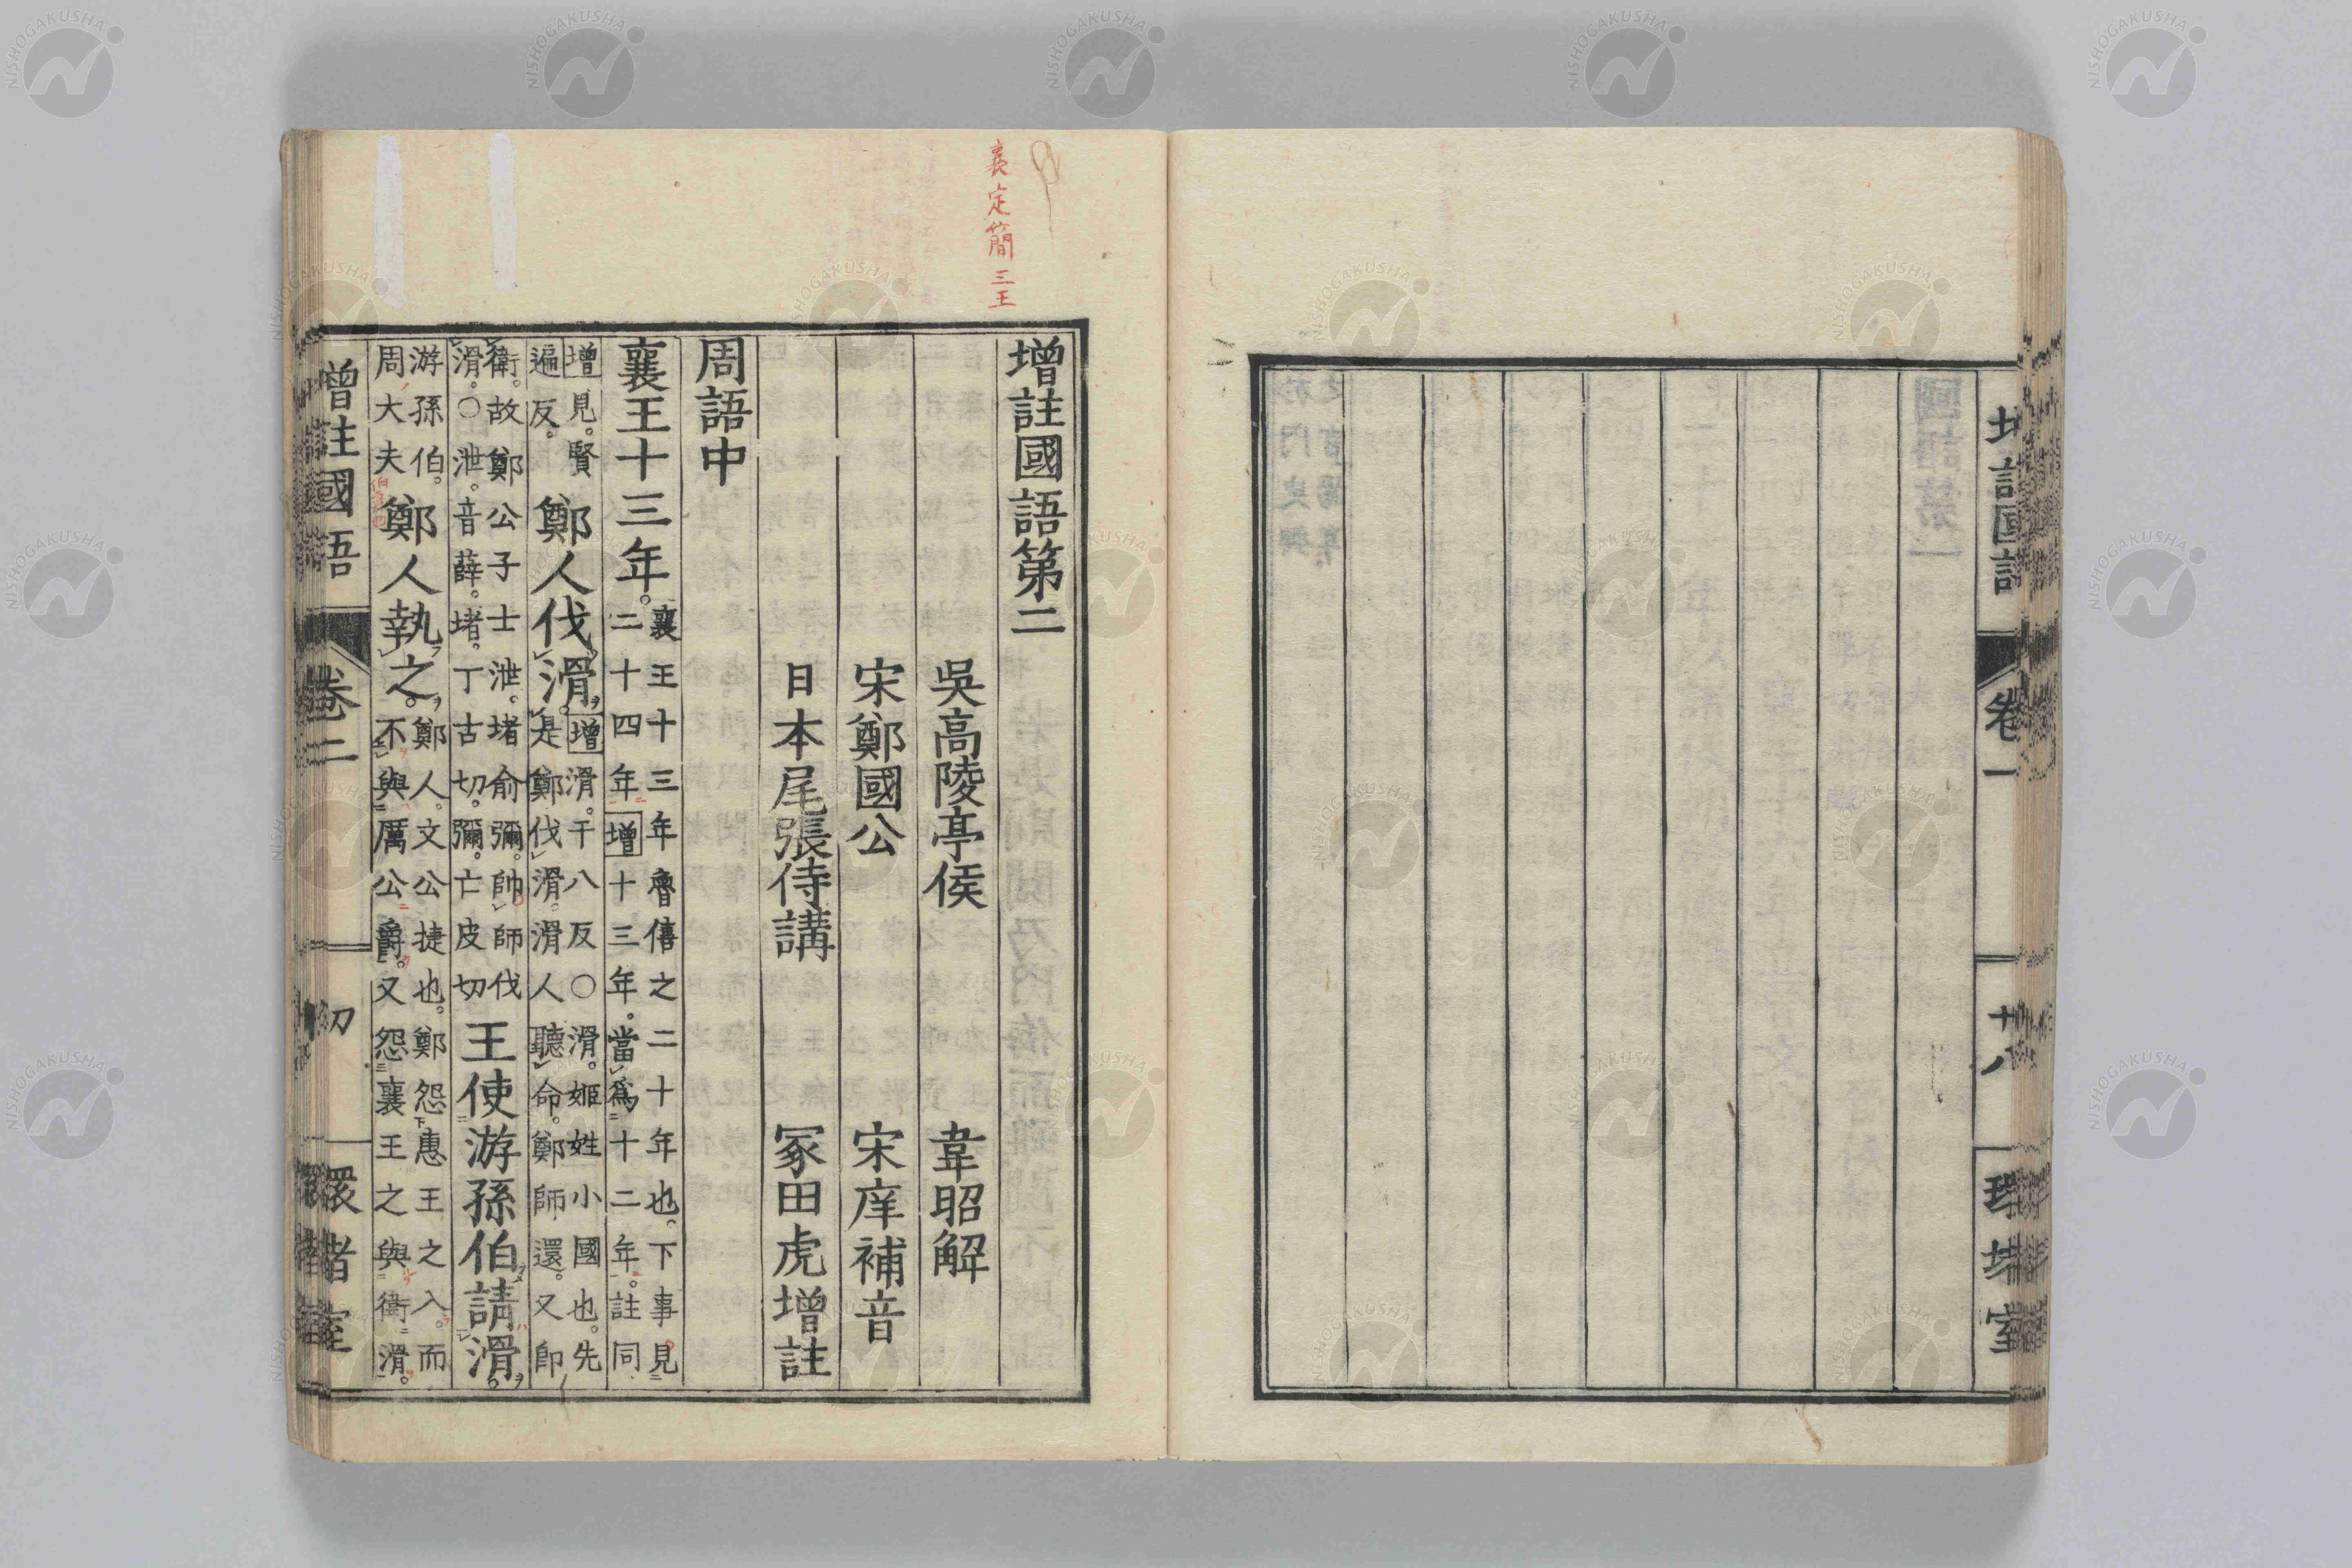 増註國語
卷一
十八
環堵室
襄定簡三王
增註國語第二
吳高陵亭侯 韋昭解
宋鄭國公 宋庠補音
日本尾張侍講 冢田虎增註
周語中
襄王十三年。襄王十三年魯僖之二十年也。下事見二十四年增十三年。當爲十二年。註同
增見。賢遍反。鄭人伐滑。增滑。于八反○滑。姬姓小國也。先是鄭伐滑。滑人聽命。鄭師還。又卽
衛。故鄭公子士泄。堵俞彌。帥師伐滑。○泄。音薛。堵。丁古切。彌。亡皮切王使游孫伯請滑。
游孫伯。周大夫鄭人執之。鄭人。文公捷也。鄭怨惠王之入。而不與厲公爵。又怨襄王之與衛滑。
增註國語
卷二
初
環堵室
NISHOGAKUSHA